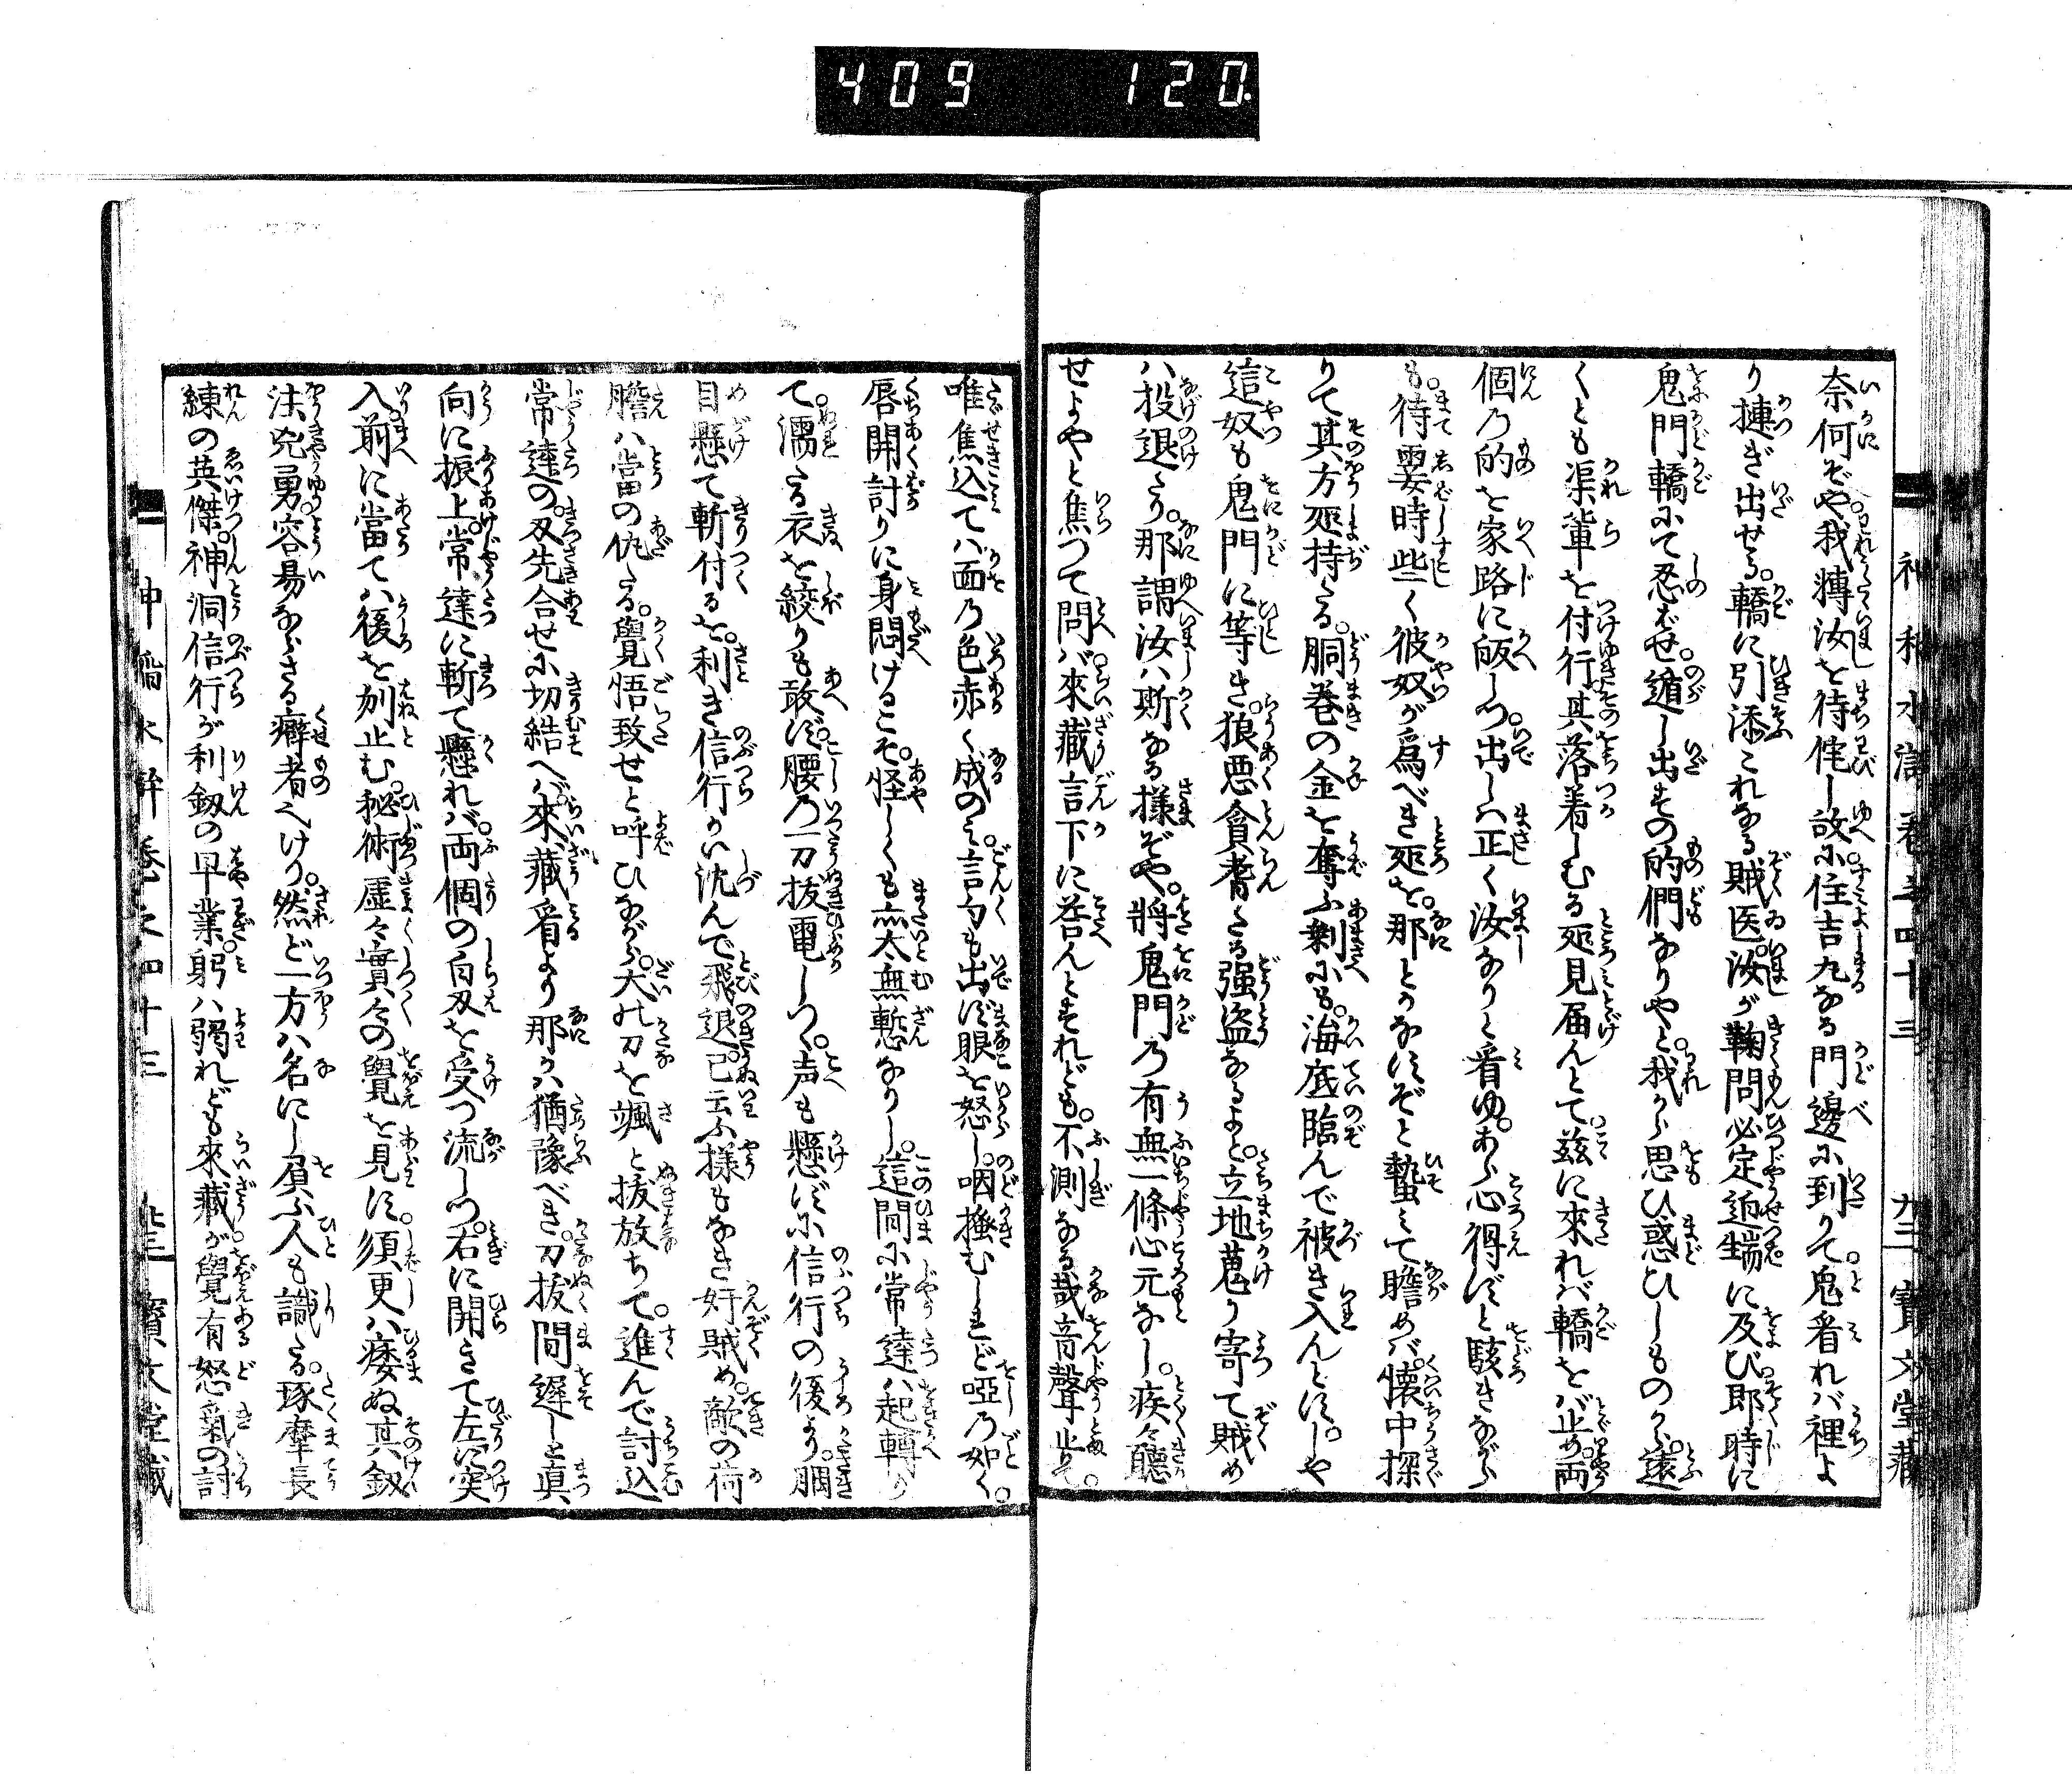 409 120
奈何ぞや。我轉汝を待侘し故に。住吉九なる門邊に到りて。鬼看れバ裡よ
り摙ぎ出せる。轎に引添これなる賊医。汝が鞠問必定迫端に及び。即時に
鬼門轎にて忍ばせ。遁し出すの的們なりやと。我から思ひ惑ひしものから。遠
くとも渠輩を付行其落着しむる処見届んとて。茲に來れバ轎をバ止め。両
個の的を家路に皈しつ。出しハ正く汝なりと看ゆ。あら心得ずと駭きながら
も。待霎時些く彼奴が爲べき処を。那とかなすぞと蟄みて瞻めバ。懐中探
りて其方処持たる。胴巻の金を奪ふ剰にも。海底臨んで被き入んとす。しや
這奴も鬼門に等き。狼悪貪着たる強盗なるよと。立地蒐り寄て賊め
ハ投退たり。那謂汝ハ斯なる様ぞや。將鬼門の有無一條心元なし。疾々聴
せよやと焦つて問バ。來藏言下に荅んとすれども。不測なる哉音聲止て。
唯焦込てハ面の色赤く成のミ。言句も出ず眼を怒し。咽搔むしれど啞の如く。
唇開計りに身悶けるこそ。怪しくも亦太無慙なりし。這間に常達ハ起轉り
て。濡たる衣を絞りも敢ず。腰の一刀抜電しつ。声も懸ずに信行の後より。胴
目懸て斬付るを。利き信行かい沈んで飛退。已云ふ様もなき奸賊め。敵の荷
膽ハ當の仇たる。覺悟致せと呼ひながら。大の刀を颯と抜放ちて。進んで討込
常達の。刄先合せに切結へバ。來藏看より那かハ猶豫べき。刀抜間遅しと真
向に振上。常達に斬て懸れバ。両個の白刄を受つ流しつ。右に開きて左に突
入。前に當てハ後を刎止む。秘術虚々實々の覺を見す。須更ハ痿ぬ其釼
法。兇勇容易ならさる癖者也けり。然ど一方ハ名にし屓ふ人も識たる。琢摩長
練の英傑。神洞信行が利釼の早業。躬ハ弱れども來藏が。覺有怒氣の討
神稲水滸卷之四十三 廿三 寳文堂藏